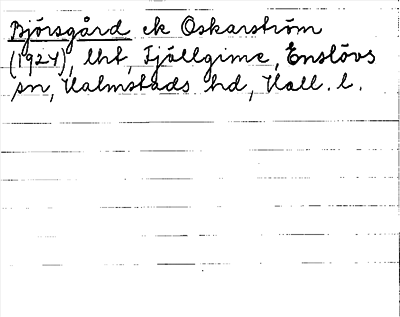 Björsgård ek Oskarström
(1927), lht, Fjällgime, Enslövs
sn, Halmstads hd, Hall. l.